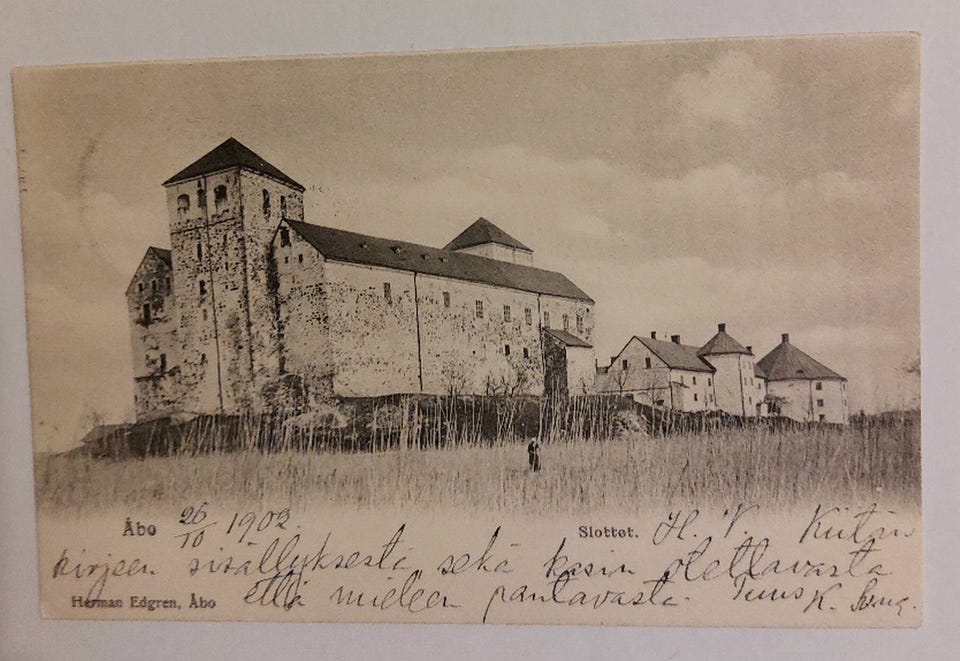 Åbo 26/10 1902. Slottet. H. V. Kiitän
kirjeen sisällyksestä sekä kasin otettavasta
että mieleen pantavasta. Tuus K.
Herman Edgren, Åbo